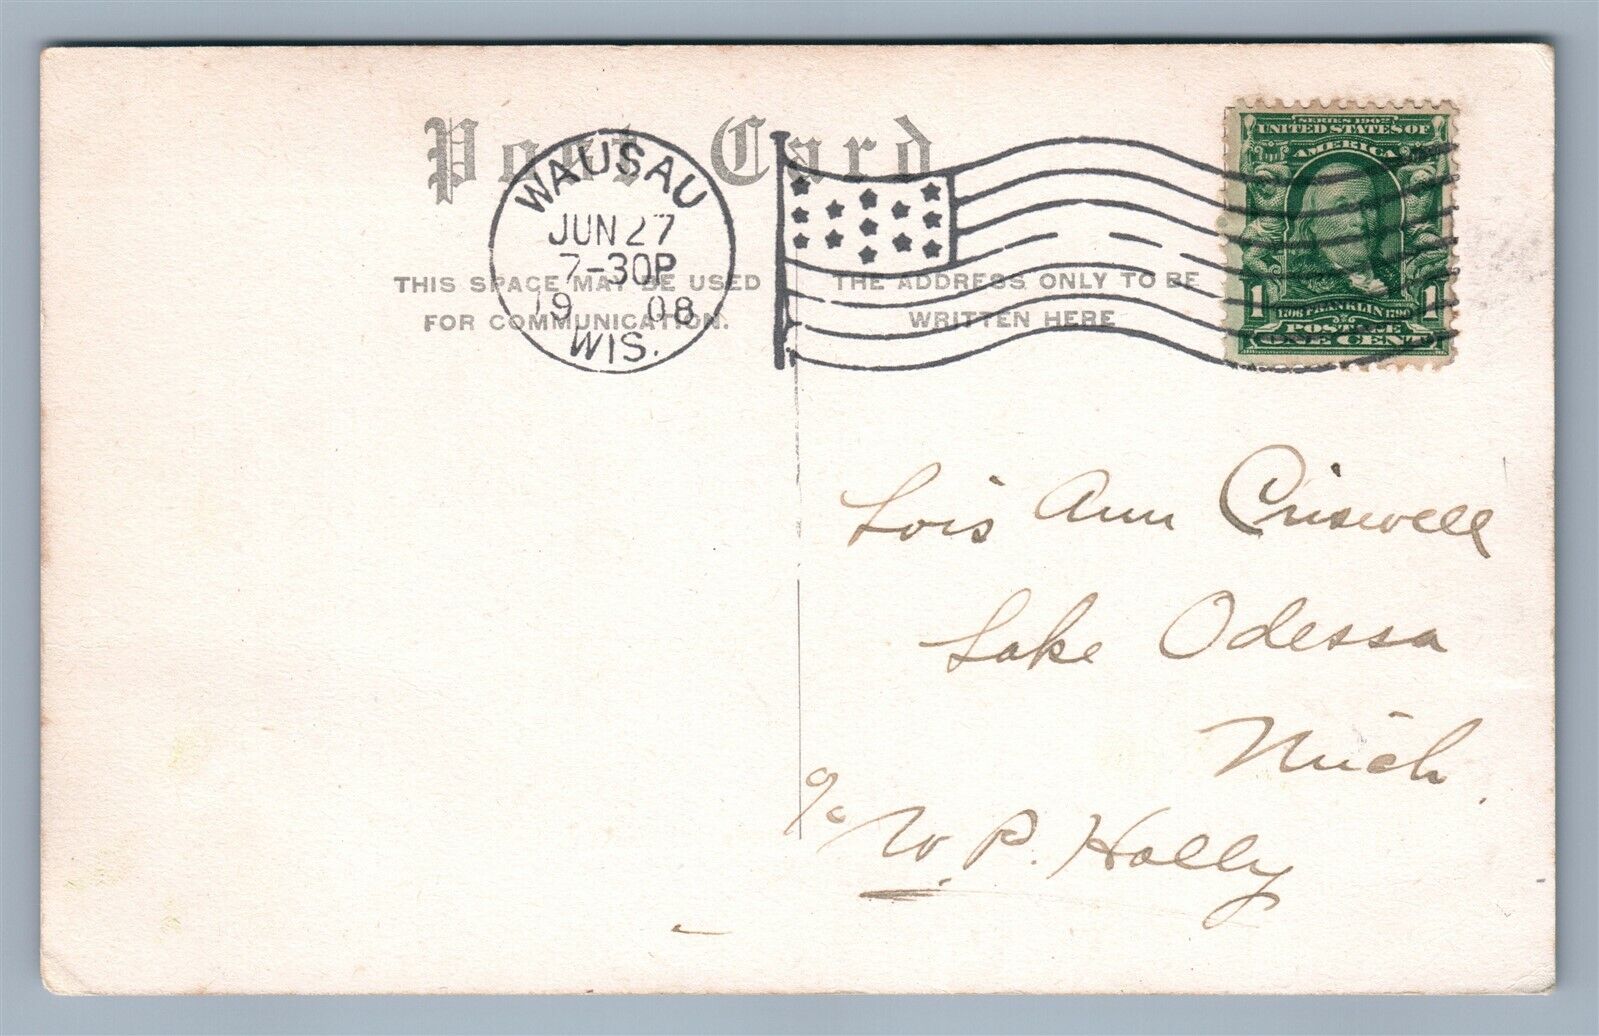 Post Card
WAUSAU
JUN 27
7-30P
1908
WIS.
THIS SPACE MAY BE USED
FOR COMMUNICATION.
THE ADDRESS ONLY TO BE
WRITTEN HERE
SERIES 1902
UNITED STATES OF
AMERICA
1706 FRANKLIN 1790
1 POSTAGE 1
ONE CENT
Lois Ann Criswell
Lake Odessa
Mich.
c/o W. P. Holly